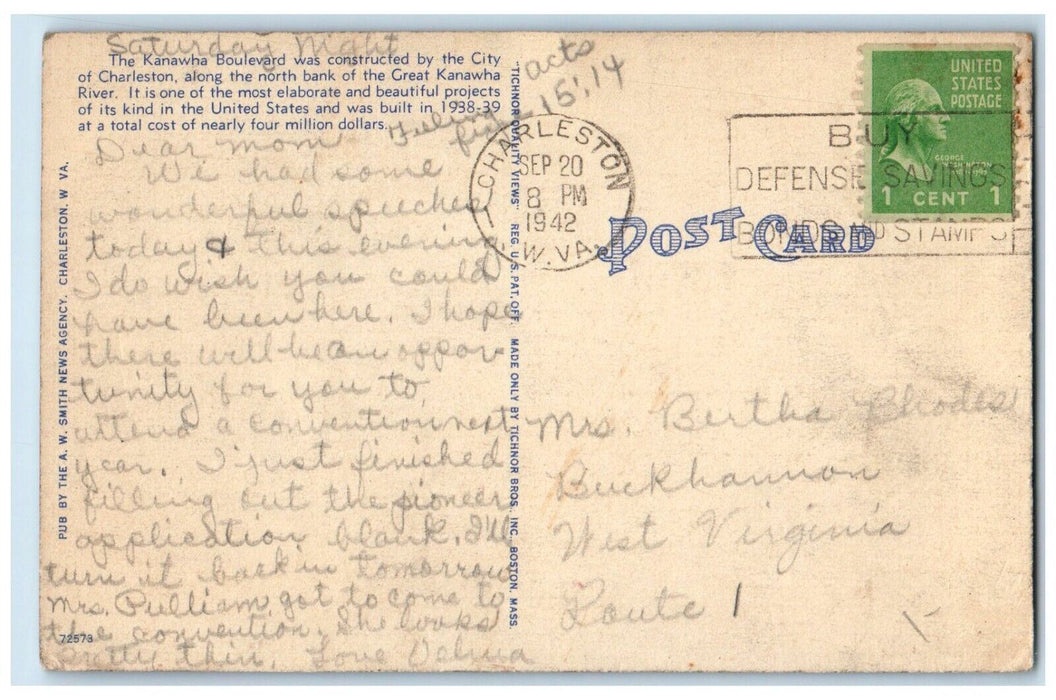 Saturday Night
The Kanawha Boulevard was constructed by the City
of Charleston, along the north bank of the Great Kanawha
River. It is one of the most elaborate and beautiful projects
of its kind in the United States and was built in 1938-39
at a total cost of nearly four million dollars.
acts
15:14
Dear Mom
We had some
wonderful speeches
today & this evening
I do wish you could
have been here. I hope
there will be an oppor-
tunity for you to
attend a convention next
year. I just finished
filling out the pioneer
application blank. I'll
turn it back in tomorrow
Mrs. Pulliam got to come to
the convention. She looks
pretty thin. Love Velma
72573
PUB BY THE A. W. SMITH NEWS AGENCY, CHARLESTON, W VA.
"TICHNOR QUALITY VIEWS" REG. U. S. PAT. OFF. MADE ONLY BY TICHNOR BROS. INC. BOSTON, MASS.
CHARLESTON
SEP 20
8 PM
1942
W. VA.
BUY
DEFENSE SAVINGS
BONDS AND STAMPS
UNITED
STATES
POSTAGE
GEORGE
WASHINGTON
1 CENT 1
POST CARD
Mrs. Bertha Rhodes
Buckhannon
West Virginia
Route 1